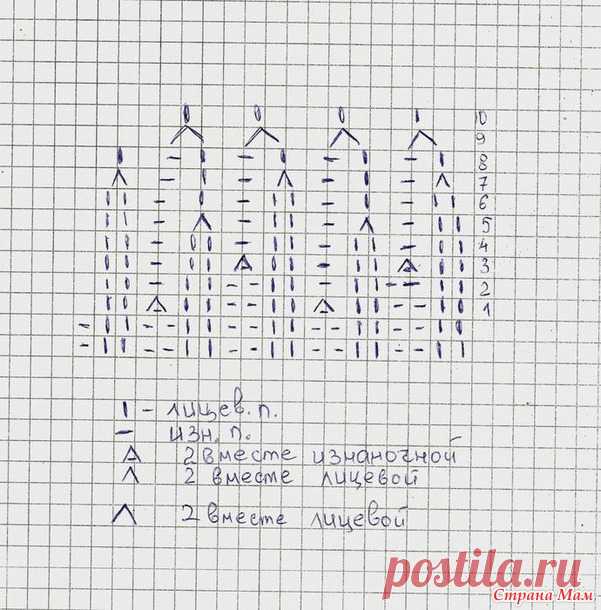 10
9
8
7
6
5
4
3
2
1
I - лицев. п.
— изн. п.
2 вместе изнаночной
Λ 2 вместе лицевой
Λ 2 вместе лицевой
postila.ru
Страна Мам.